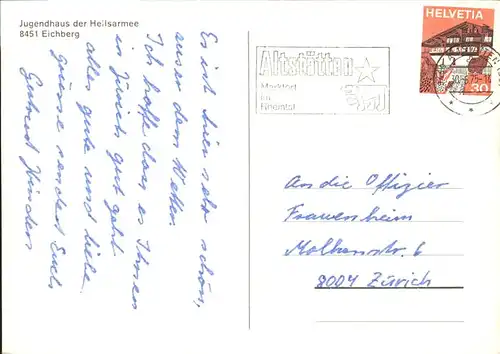 Jugendhaus der Heilsarmee
8451 Eichberg
Es ist hier sehr schön,
ausser dem Wetter.
Ich hoffe dass es Ihnen
in Zürich gut geht.
alles gute und liebe
Grüsse sendet Euch
Gertrud
HELVETIA
30
Altstätten
Marktort
im
Rheintal
An die Offizier
Frauenheim
Molkenstr. 6
8004 Zürich